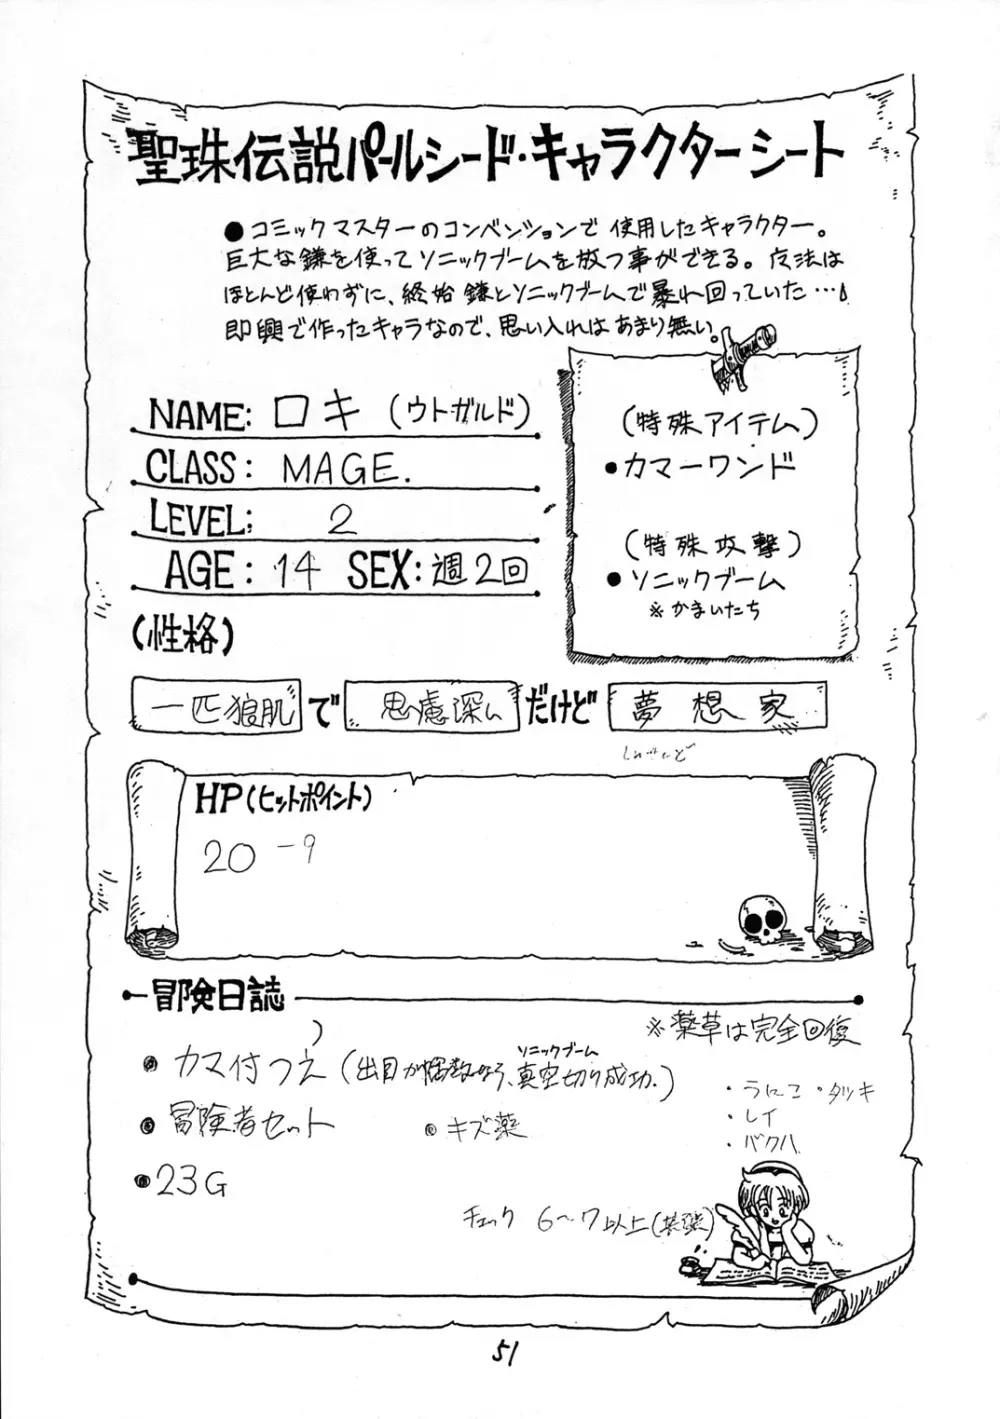 聖珠伝説パールシード・キャラクターシート
●コミックマスターのコンベンションで使用したキャラクター。
巨大な鎌を使ってソニックブームを放つ事ができる。魔法は
ほとんど使わずに、終始鎌とソニックブームで暴れ回っていた…
即興で作ったキャラなので、思い入れはあまり無い。
NAME: ロキ (ウトガルド)
CLASS: MAGE.
LEVEL: 2
AGE: 14 SEX: 週2回
(特殊アイテム)
●カマーワンド
(特殊攻撃)
●ソニックブーム
※かまいたち
(性格)
一匹狼肌 で 思慮深い だけど 夢想家
HP(ヒットポイント)
20 -9
冒険日誌
※薬草は完全回復
●カマ付つえ(出目が偶数なら、真空切り成功.)
ソニックブーム
●冒険者セット
●キズ薬
●23G
・うにこ ・タツキ
・レイ
・バクハ
チェック 6〜7以上
51